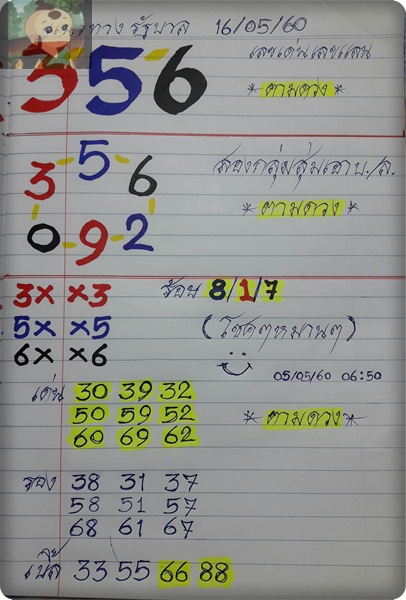 แนวทาง รัฐบาล 16/05/60
เลขเด่นเลขแลน
356
*ตามดวง*
สองกลุ่มสุ่มเอา บ./ล.
3-5-6
*ตามดวง*
0-9-2
3× ×3 ร้อย 8/1/7
5× ×5 (โชคดีๆ)
6× ×6
05/05/60 06:50
เด่น 30 39 32
50 59 52 *ตามดวง*
60 69 62
รอง 38 31 37
58 51 57
68 61 67
เบิ้ล 33 55 66 88